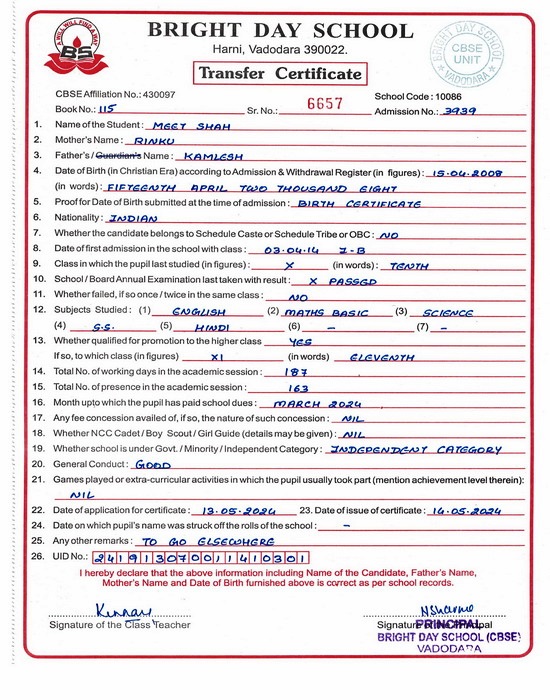 A WILL WILL FIND A WAY
BS
BRIGHT DAY SCHOOL
Harni, Vadodara 390022.
Transfer Certificate
BRIGHT DAY SCHOOL
CBSE
UNIT
VADODARA
CBSE Affiliation No.: 430097
School Code : 10086
Book No.: 115 Sr. No.: 6657 Admission No.: 3939
1. Name of the Student : MEET SHAH
2. Mother's Name : RINKU
3. Father's / Guardian's Name : KAMLESH
4. Date of Birth (in Christian Era) according to Admission & Withdrawal Register (in figures) : 15.04.2008
(in words) : FIFTEENTH APRIL TWO THOUSAND EIGHT
5. Proof for Date of Birth submitted at the time of admission : BIRTH CERTIFICATE
6. Nationality : INDIAN
7. Whether the candidate belongs to Schedule Caste or Schedule Tribe or OBC : NO
8. Date of first admission in the school with class : 03.04.14 I-B
9. Class in the pupil last studied (in figures) : X (in words) : TENTH
10. School / Board Annual Examination last taken with result : X PASSED
11. Whether failed, if so once / twice in the same class : NO
12. Subjects Studied : (1) ENGLISH (2) MATHS BASIC (3) SCIENCE
(4) S.S. (5) HINDI (6) - (7) -
13. Whether qualified for promotion to the higher class YES
If so, to which class (in figures) XI (in words) ELEVENTH
14. Total No. of working days in the academic session : 187
15. Total No. of presence in the academic session : 163
16. Month upto which the pupil has paid school dues : MARCH 2024
17. Any fee concession availed of, if so, the nature of such concession : NIL
18. Whether NCC Cadet / Boy Scout / Girl Guide (details may be given) : NIL
19. Whether school is under Govt. / Minority / Independent Category : INDEPENDENT CATEGORY
20. General Conduct : GOOD
21. Games played or extra-curricular activities in which the pupil usually took part (mention achievement level therein):
NIL
22. Date of application for certificate : 13.05.2024 23. Date of issue of certificate : 14.05.2024
24. Date on which pupil's name was struck off the rolls of the school : -
25. Any other remarks : TO GO ELSEWHERE
26. UID No.: 241913070011410301
I hereby declare that the above information including Name of the Candidate, Father's Name,
Mother's Name and Date of Birth furnished above is correct as per school records.
Signature of the Class Teacher
Signature of the Principal
PRINCIPAL
BRIGHT DAY SCHOOL (CBSE)
VADODARA